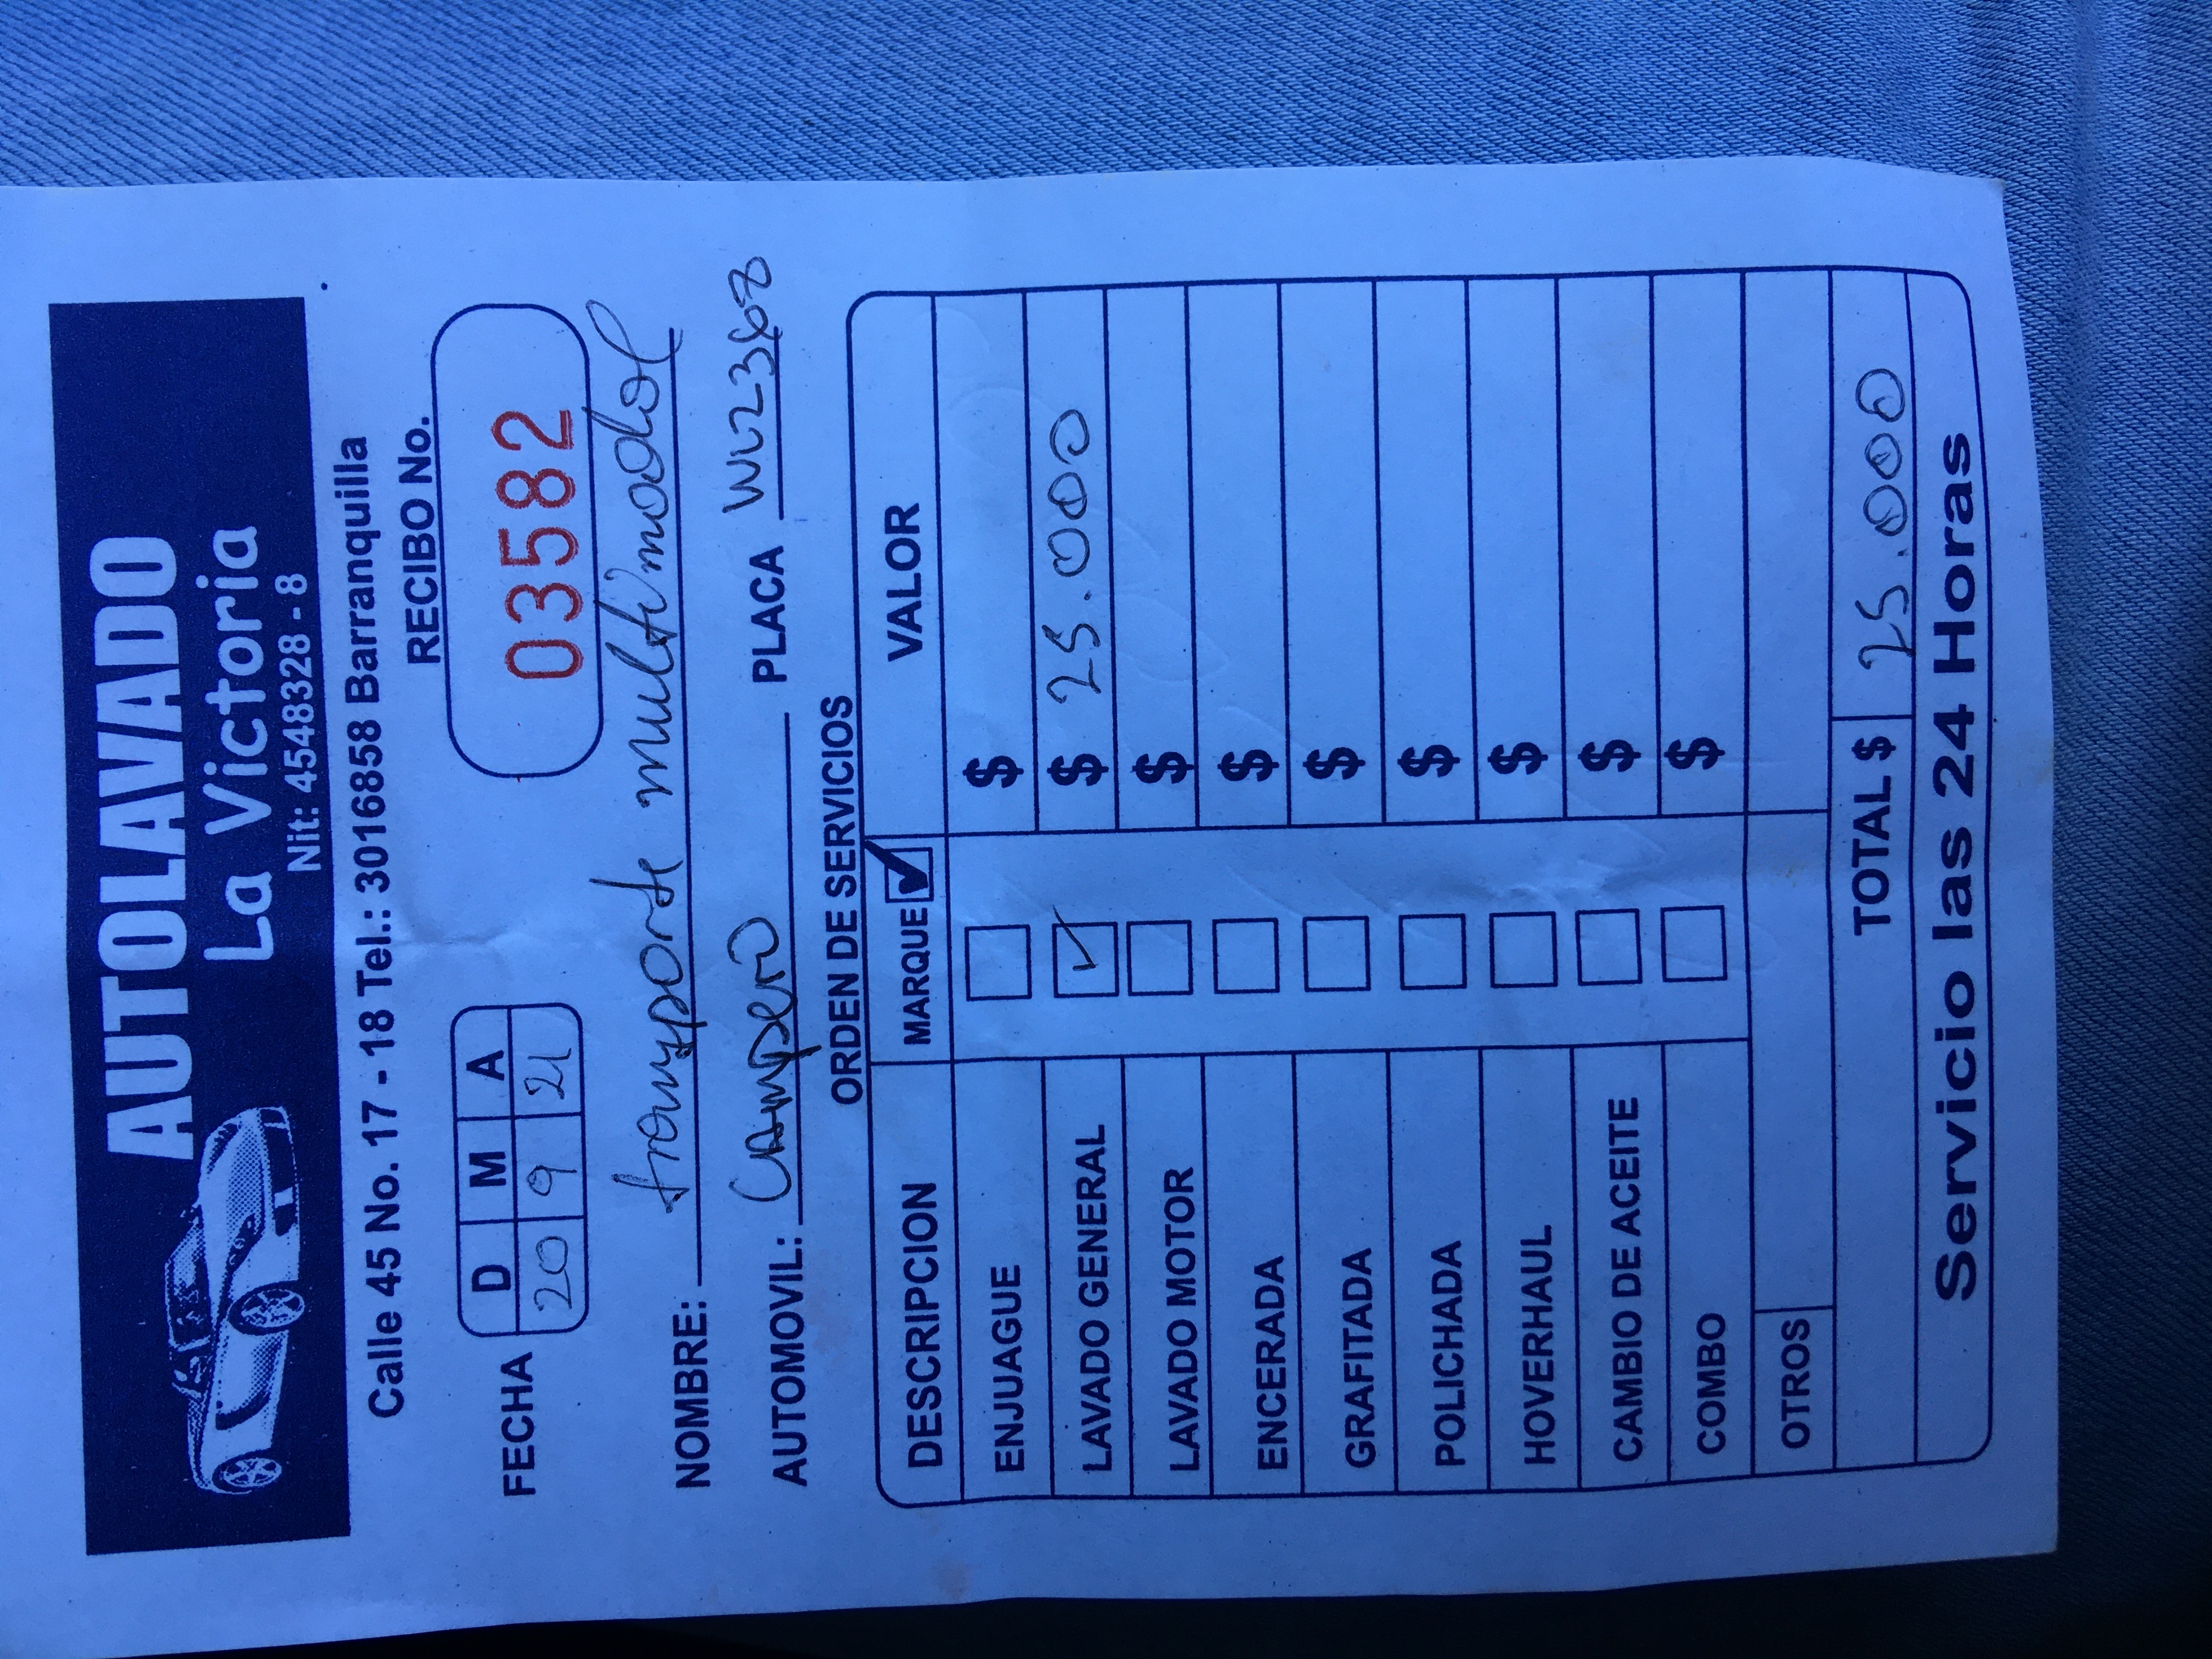 AUTOLAVADO
La Victoria
Nit: 4548328 - 8
Calle 45 No. 17 - 18 Tel.: 3016858 Barranquilla
RECIBO No.
FECHA D M A
20 9 21
03582
NOMBRE: transporte multimodal
AUTOMOVIL: Campero PLACA
ORDEN DE SERVICIOS
DESCRIPCION MARQUE VALOR
ENJUAGUE $
LAVADO GENERAL ✓ $ 25.000
LAVADO MOTOR $
ENCERADA $
GRAFITADA $
POLICHADA $
HOVERHAUL $
CAMBIO DE ACEITE $
COMBO $
OTROS
TOTAL $ 25.000
Servicio las 24 Horas